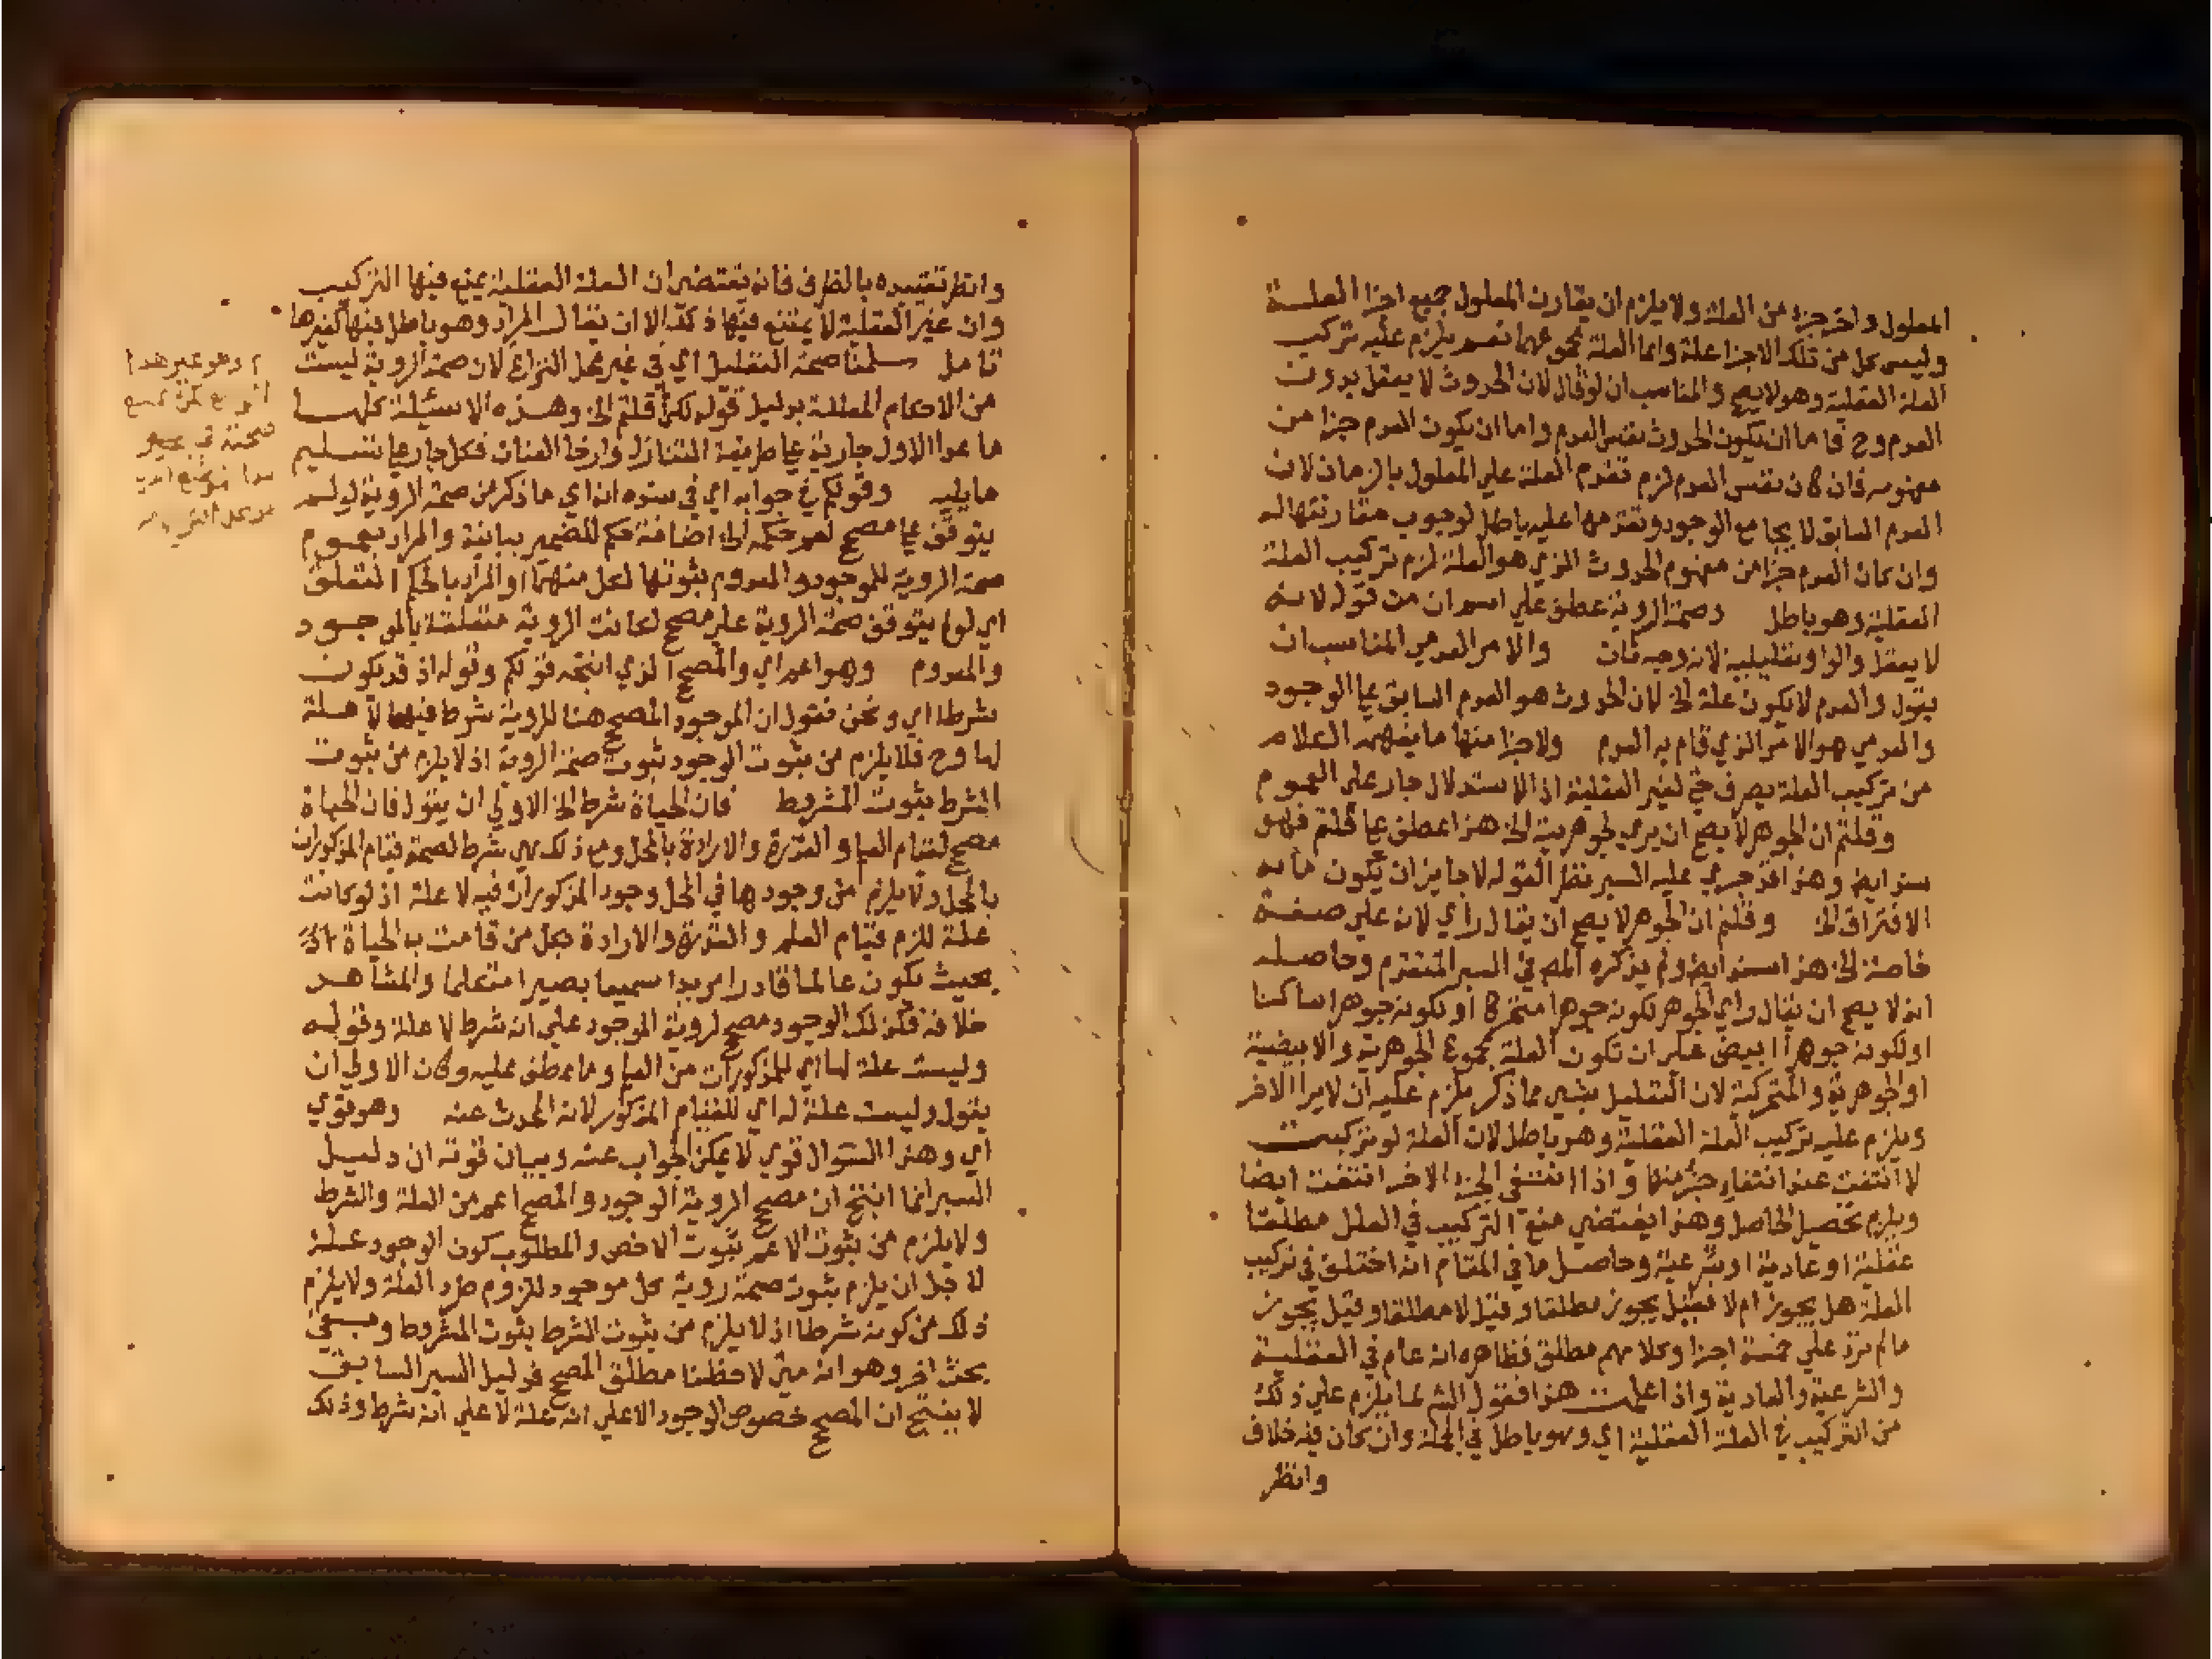 المعلول واخر جزء من العلة ولا يلزم ان يقارن المعلول جميع اجزا العلة
وليس كل من تلك الاجزا علة وانما العلة مجموعهما نعم يلزم عليه تركيب
العلة العقلية وهو لا يصح والمناسب ان لو قال لان الحدوث لا يعقل بدون
العدم وح فاما ان يكون الحدوث نفس العدم واما ان يكون العدم جزا من
مفهومه فان كان نفس العدم لزم تقدم العلة علي المعلول بالزمان لان
العدم السابق لا يجامع الوجود وتقدمها عليه باطل لوجوب مقارنتها له
وان كان العدم جزا من مفهوم الحدوث الذي هو العلة لزم تركيب العلة
العقلية وهو باطل وصحة الروية عطف علي اسم ان من قوله لانه
لا يعقل والواو تعليلية لانه وجه ثان والامر العدمي المناسب ان
يقول والعدم لا يكون علة الخ لان الحدوث هو العدم السابق علي الوجود
والعدمي هو الامر الذي قام به العدم ولا جزا منها ما يفهمه الكلام
من تركيب العلة يصرف حتي لغير العقلية اذ الاستدلال جار علي العموم
وقلتم ان الجوهر لا يصح ان يري لجوهريته الخ هذا عطف علي قلتم فهو
سند ايضا وهذا قد جري عليه السبر نظر القوله لا جايز ان يكون ما به
الافتراق الخ وقلتم ان الجوهر لا يصح ان يقال راي لان علي صفة
خاصة الخ هذا سند ايضا ولم يذكره المص في السبر المتقدم وحاصله
انه لا يصح ان يقال راي الجوهر لكونه جوهرا متحركا او لكونه جوهرا ساكنا
او لكونه جوهرا ابيض علي ان تكون العلة مجموع الجوهرية والابيضية
او الجوهرية والمتحركية لان التعليل بشي مما ذكر يلزم عليه ان لا يرا الاخر
ويلزم عليه تركيب العلة العقلية وهو باطل لان العلة لو تركبت
لا انتفت عند انتفاء جزء منها واذا انتفي الجزء الاخر انتفت ايضا
ويلزم تحصيل الحاصل وهذا يقتضي منع التركيب في العلل مطلقا
عقلية او عادية او شرعية وحاصل ما في المقام انه اختلف في تركيب
العلة هل يجوز ام لا فقيل يجوز مطلقا وقيل لا مطلقا وقيل يجوز
ما لم تزد علي خمسة اجزا وكلامهم مطلق فظاهره انه عام في العقلية
والشرعية والعادية واذا علمت هذا فقول الش لما يلزم علي ذلك
من التركيب في العلة العقلية اي وهو باطل في الجملة وان كان فيه خلاف
وانظر
وانظر تقييده بالظرف فانه يقتضي ان العلة العقلية يمنع فيها التركيب
وان غير العقلية لا يمتنع فيها ذلك الا ان يقال المراد وهو باطل فيها كغيرها
تامل سلمنا صحة التعليل اي في غير محل النزاع لان صحة الروية ليست
من الاحكام المعللة بدليل قوله لكن قلتم الخ وهذه الاسئلة كلها
ما عدا الاول جارية علي طريقة التنازل وارخا العنان فكل جار علي تسليم
ما يليه وقولكم في جوابه اي في سنده ان اي ما ذكر من صحة الروية لو لم
يتوقف علي مصحح لعم حكمه الخ اضافة حكم للضمير بيانية والمراد بعموم
صحة الروية للموجود والمعدوم ثبوتها لكل منهما او المراد بالحكم المتعلق
اي لو لم يتوقف صحة الروية علي مصحح لكانت الروية متعلقة بالموجود
والمعدوم وهو اعم اي والمصحح الذي انتجه قولكم وقوله اذ قد يكون
شرطا اي ونحن نقول ان الموجود المصحح هنا للروية شرط فيها لا علة
لها وح فلا يلزم من ثبوت الوجود ثبوت صحة الروية اذ لا يلزم من ثبوت
الشرط ثبوت المشروط فان الحياة شرط الخ الاولي ان يقول فان الحياة
مصحح لقيام العلم والقدرة والارادة بالمحل ومع ذلك هي شرط لصحة قيام المذكورات
بالمحل ولا يلزم من وجودها في المحل وجود المذكورات فيه لا علة اذ لو كانت
علة للزم قيام العلم والقدرة والارادة بكل من قامت به الحياة
بحيث يكون عالما قادرا مريدا سميعا بصيرا متكلما والمشاهد
خلافه فكذلك الوجود مصحح لروية الموجود علي انه شرط لا علة وقوله
وليست علة لها اي للمذكورات من العلم وما عطف عليه وكان الاولي ان
يقول وليست علة له اي للقيام المذكور لانه المحدث عنه وهو قوي
اي وهذا السوال قوي لا يمكن الجواب عنه وبيان قوته ان دليل
السبر انما انتج ان مصحح الروية الوجود والمصحح اعم من العلة والشرط
ولا يلزم من ثبوت الاعم ثبوت الاخص والمطلوب كون الوجود علة
لاجل ان يلزم ثبوت صحة روية كل موجود للزوم طرد العلة ولا يلزم
ذلك من كونه شرطا اذ لا يلزم من ثبوت الشرط ثبوت المشروط وبقي
بحث اخر وهو انه متي لاحظنا مطلق المصحح فدليل السبر السابق
لا ينتج ان المصحح خصوص الوجود الا علي انه علة لا علي انه شرط وذلك